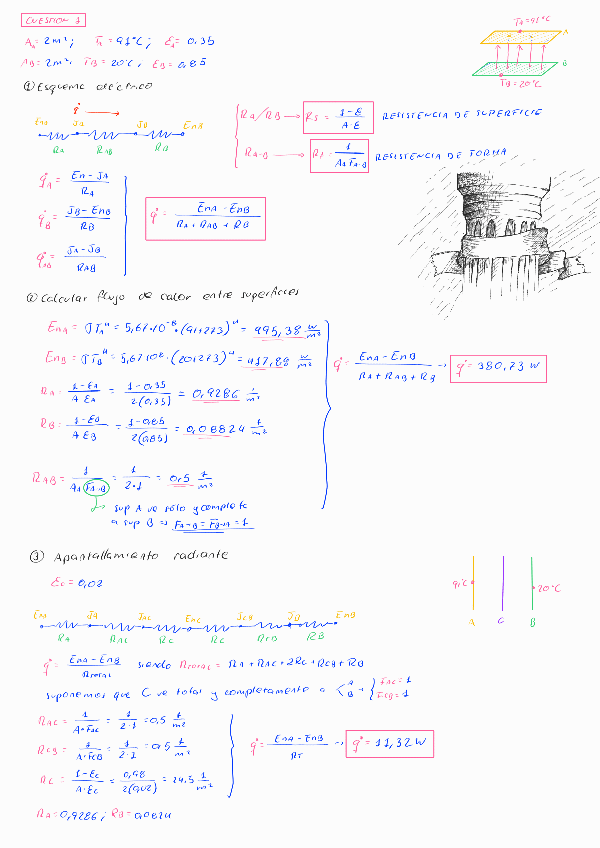 CUESTION 1
A_A = 2m²; T_A = 91°C; E_A = 0,35
A_B = 2m²; T_B = 20°C; E_B = 0,85
T_A = 91°C
A
B
T_B = 20°C
① Esquema eléctrico
q̇
E_nA J_A J_B E_nB
R_A R_AB R_B
R_A/R_B → R_S = (1-E)/(A·E) RESISTENCIA DE SUPERFICIE
R_A-B → R_F = 1/(A_A F_A-B) RESISTENCIA DE FORMA
q̇_A = (E_n - J_A)/R_A
q̇_B = (J_B - E_nB)/R_B
q̇_AB = (J_A - J_B)/R_AB
q̇ = (E_nA - E_nB)/(R_A + R_AB + R_B)
② Calcular flujo de calor entre superficies
E_nA = σT_A⁴ = 5,67·10⁻⁸·(91+273)⁴ = 995,38 w/m²
E_nB = σT_B⁴ = 5,67·10⁻⁸·(20+273)⁴ = 417,88 w/m²
R_A = (1-E_A)/(A E_A) = (1-0,35)/(2(0,35)) = 0,9286 1/m²
R_B = (1-E_B)/(A E_B) = (1-0,85)/(2(0,85)) = 0,08824 1/m²
R_AB = 1/(A_A F_A-B) = 1/(2·1) = 0,5 1/m²
q̇ = (E_nA - E_nB)/(R_A + R_AB + R_B) → q̇ = 380,73 W
sup A ve solo y completa
a sup B ⇒ F_A-B = F_B-A = 1
③ Apantallamiento radiante
E_C = 0,02
91°C
20°C
A C B
E_nA J_A J_AC E_nC J_CB J_B E_nB
R_A R_AC R_C R_C R_CB R_B
q̇ = (E_nA - E_nB)/R_TOTAL siendo R_TOTAL = R_A + R_AC + 2R_C + R_CB + R_B
suponemos que C ve total y completamente a < A B → { F_AC = 1 F_CB = 1
R_AC = 1/(A·F_AC) = 1/(2·1) = 0,5 1/m²
R_CB = 1/(A·F_CB) = 1/(2·1) = 0,5 1/m²
R_C = (1-E_C)/(A·E_C) = 0,98/(2(0,02)) = 24,5 1/m²
q̇ = (E_nA - E_nB)/R_T → q̇ = 11,32 W
R_A = 0,9286; R_B = 0,0824